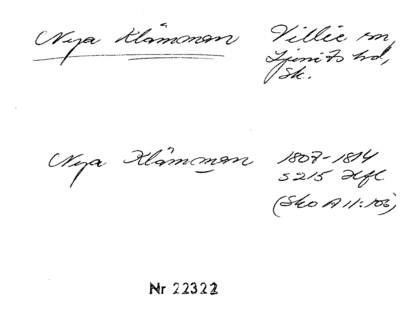 Nya Klämman Villie sn,
Ljunits hd,
Sk.
Nya Klämman 1807-1814
S215 Hfl
(Sko A II:10b)
Nr 22322